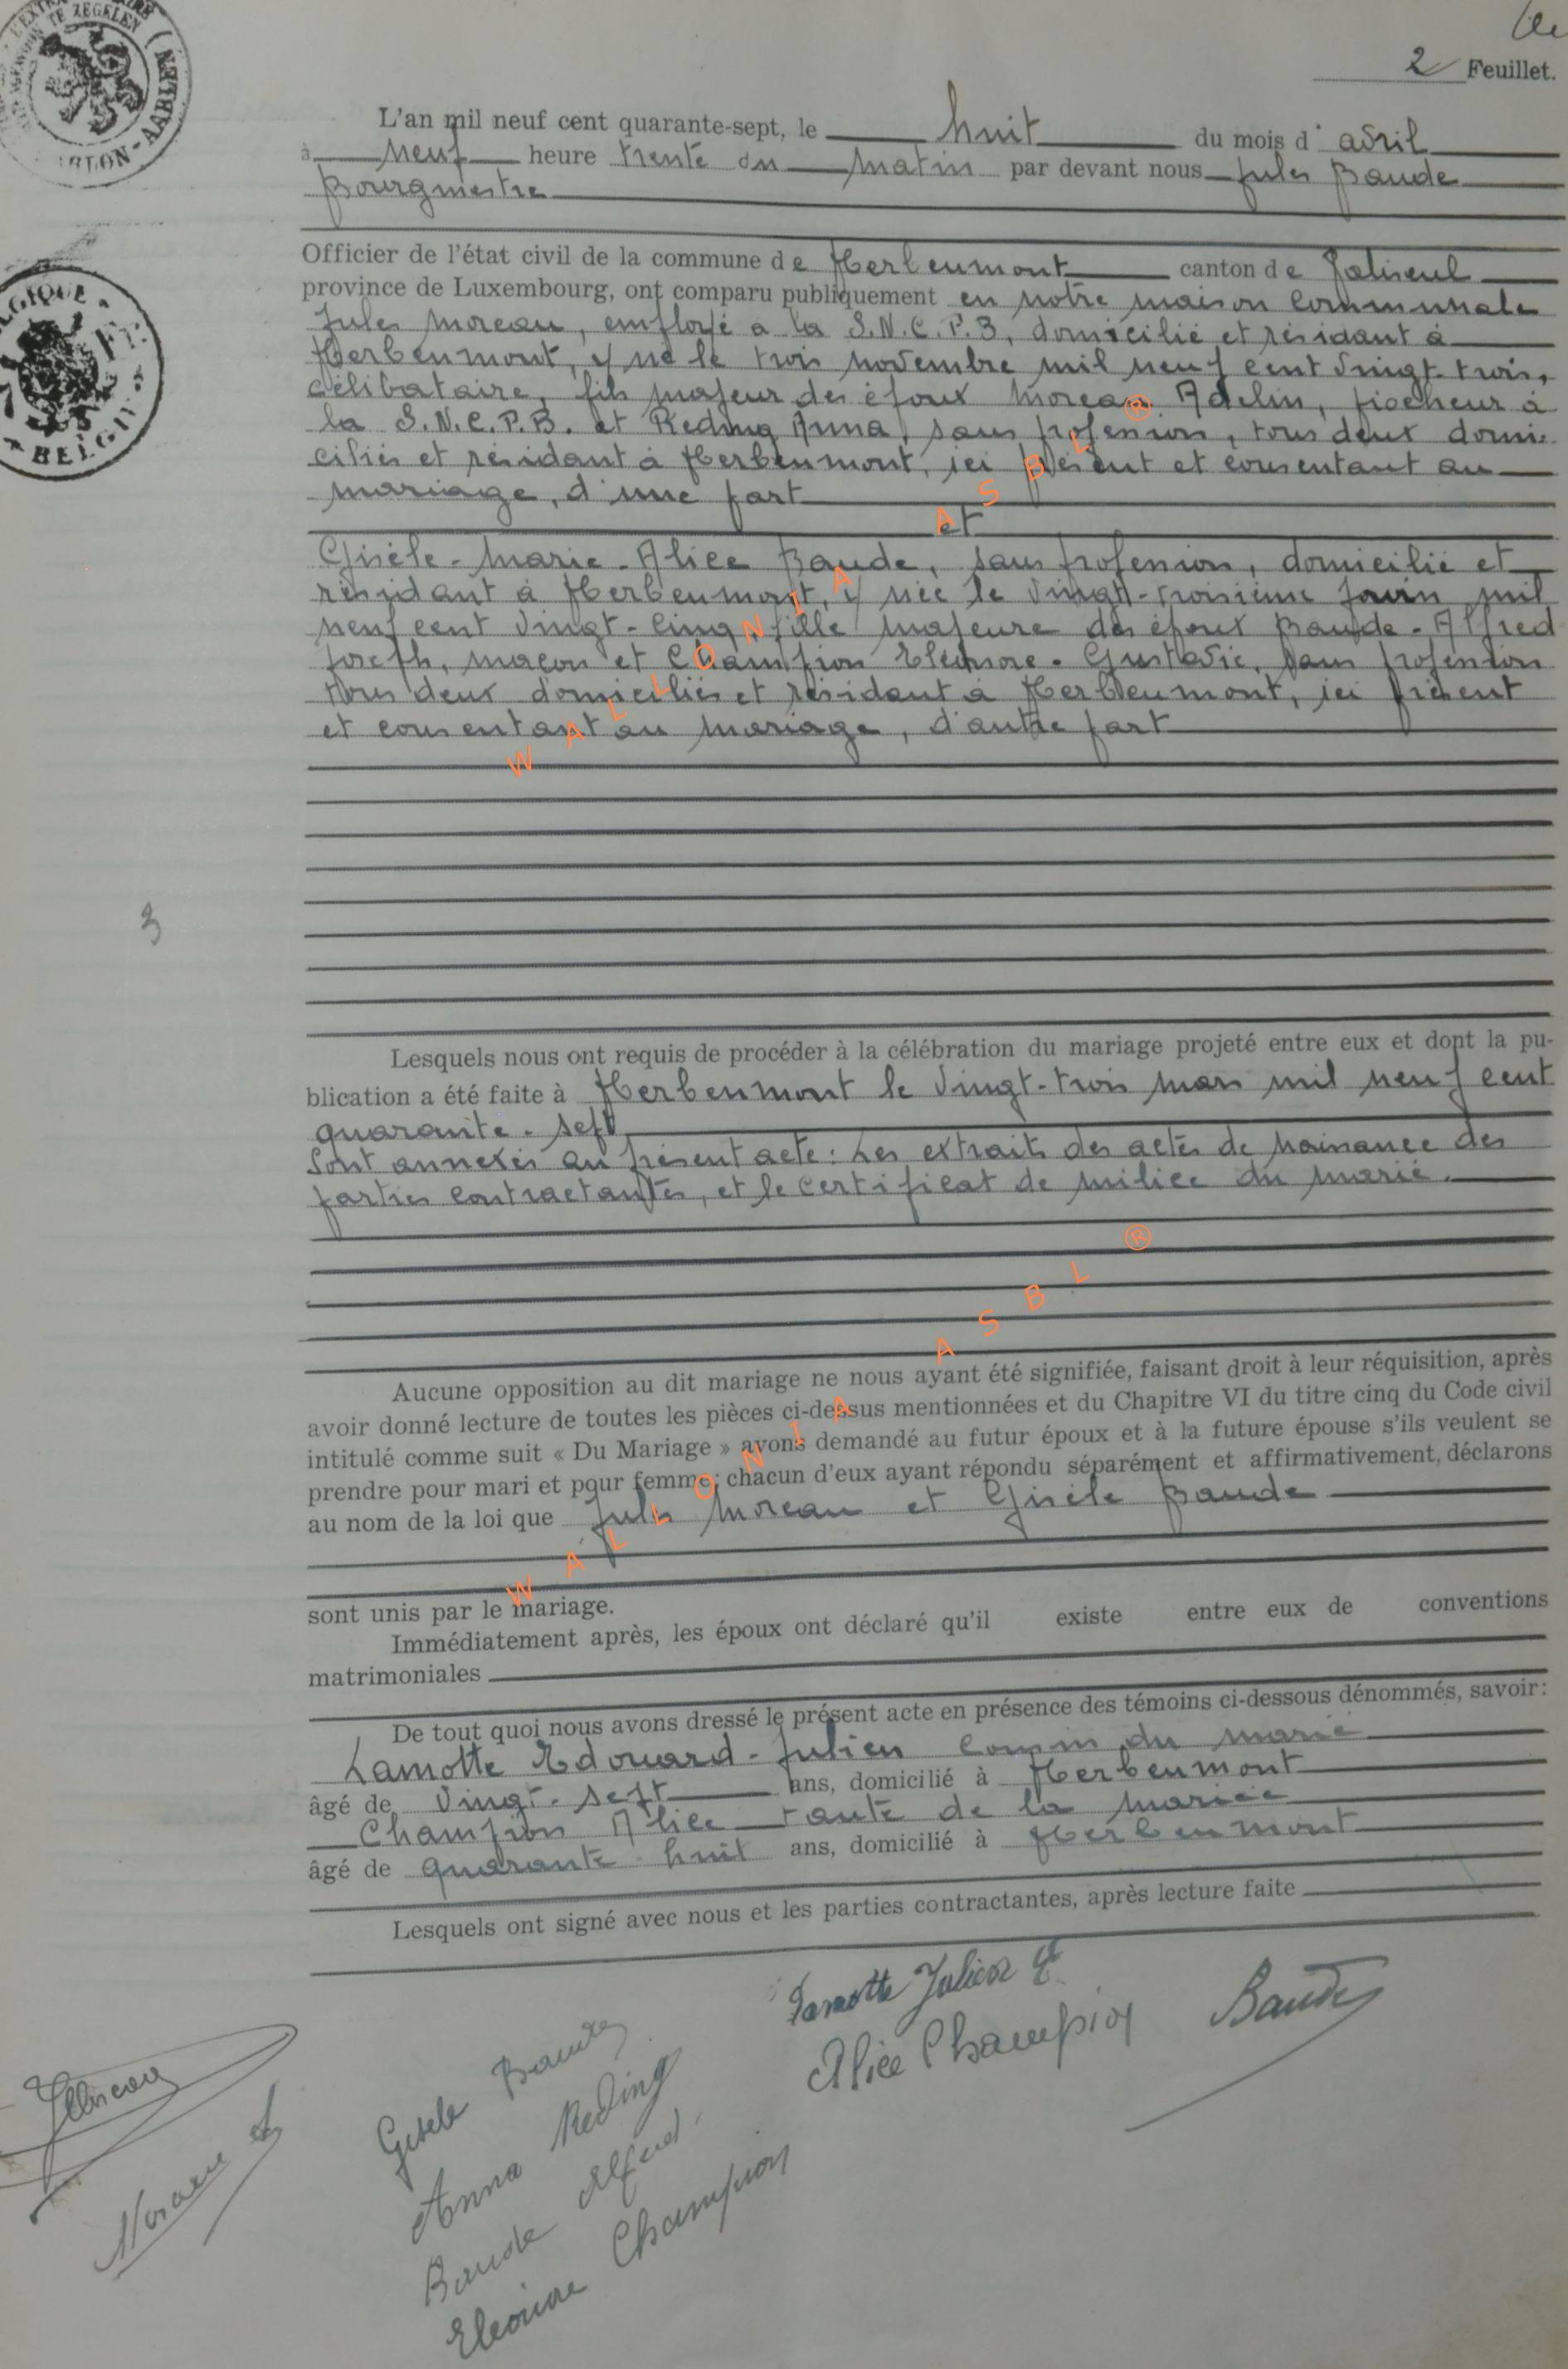 2 Feuillet.
L'an mil neuf cent quarante-sept, le huit du mois d'avril
à neuf heure trente du matin par devant nous Jules Baude
Bourgmestre
Officier de l'état civil de la commune de Herbeumont canton de Paliseul
province de Luxembourg, ont comparu publiquement en notre maison communale
Jules Moreau, employé à la S.N.C.F.B, domicilié et résidant à
Herbeumont, y né le trois novembre mil neuf cent vingt-trois,
célibataire, fils majeur des époux Moreau Adelin, piocheur à
la S.N.C.F.B. et Reding Anna, sans profession, tous deux domi-
ciliés et résidant à Herbeumont, ici présent et consentant au
mariage, d'une part
et
Gisèle-Marie-Alice Baude, sans profession, domicilié et
résidant à Herbeumont, y née le vingt-troisième jour mil
neuf cent vingt-cinq fille majeure des époux Baude-Alfred
Joseph, maçon et Champion Eléonore-Gustavie, sans profession
tous deux domiciliés et résidant à Herbeumont, ici présent
et consentant au mariage, d'autre part
3
Lesquels nous ont requis de procéder à la célébration du mariage projeté entre eux et dont la pu-
blication a été faite à Herbeumont le vingt-trois mars mil neuf cent
quarante-sept
Sont annexés au présent acte: Les extraits des actes de naissance des
parties contractantes, et le certificat de milice du marié.
Aucune opposition au dit mariage ne nous ayant été signifiée, faisant droit à leur réquisition, après
avoir donné lecture de toutes les pièces ci-dessus mentionnées et du Chapitre VI du titre cinq du Code civil
intitulé comme suit « Du Mariage » avons demandé au futur époux et à la future épouse s'ils veulent se
prendre pour mari et pour femme; chacun d'eux ayant répondu séparément et affirmativement, déclarons
au nom de la loi que Jules Moreau et Gisèle Baude
sont unis par le mariage.
Immédiatement après, les époux ont déclaré qu'il existe entre eux de conventions
matrimoniales
De tout quoi nous avons dressé le présent acte en présence des témoins ci-dessous dénommés, savoir:
Lamotte Edouard-Julien cousin du marié
âgé de vingt-sept ans, domicilié à Herbeumont
Champion Alice tante de la mariée
âgé de quarante-huit ans, domicilié à Herbeumont
Lesquels ont signé avec nous et les parties contractantes, après lecture faite
Lamotte Julien E
Alice Champion
Baude
JMoreau
Moreau A
Gisèle Baude
Anna Reding
Baude Alfred
Eléonore Champion
WALLONIA ASBL ®
WALLONIA ASBL ®